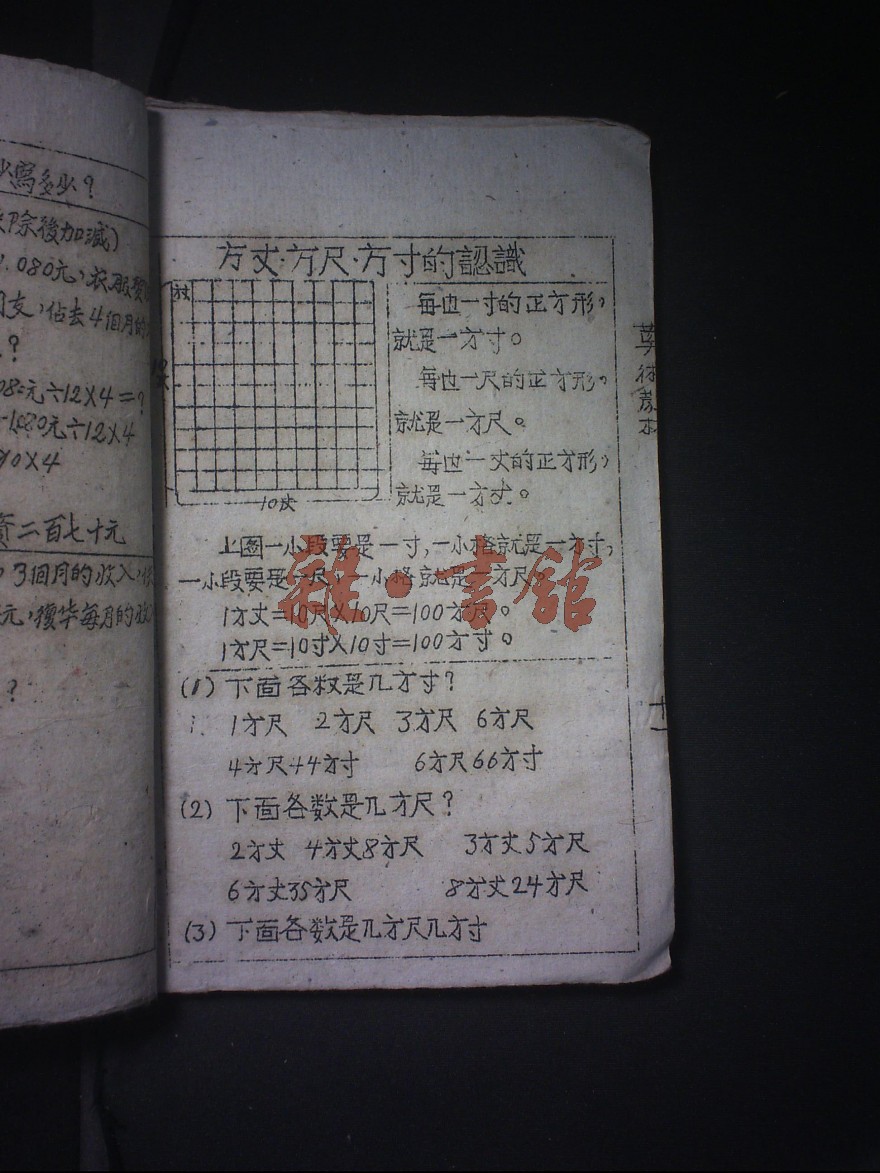 少寫多少？
後加減)
080元，衣服費
支，佔去4個月的
？
元÷12×4=?
1080元÷12×4
90×4
二百七十元
3個月的收入，
元，復华每月的收
？
方丈·方尺·方寸的認識
每边一寸的正方形，
就是一方寸。
每边一尺的正方形，
就是一方尺。
每边一丈的正方形，
就是一方丈。
10
上图一小段要是一寸，一小格就是一方寸，
一小段要是一尺，一小格就是一方尺。
1方丈=10尺×10尺=100方尺。
1方尺=10寸×10寸=100方寸。
(1) 下面各数是几方寸？
1方尺 2方尺 3方尺 6方尺
4方尺44方寸 6方尺66方寸
(2) 下面各数是几方尺？
2方丈 4方丈8方尺 3方丈5方尺
6方丈35方尺 8方丈24方尺
(3) 下面各数是几方尺几方寸
十一
雜·書館